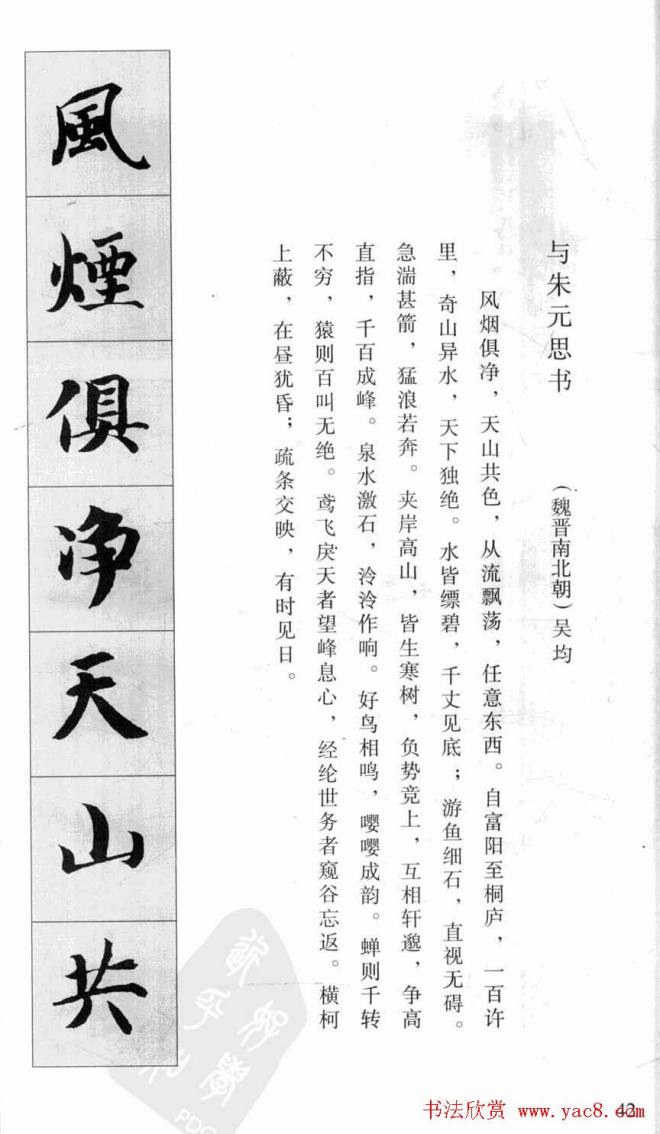 与朱元思书
（魏晋南北朝）吴均
风烟俱净，天山共色，从流飘荡，任意东西。自富阳至桐庐，一百许
里，奇山异水，天下独绝。水皆缥碧，千丈见底；游鱼细石，直视无碍。
急湍甚箭，猛浪若奔。夹岸高山，皆生寒树，负势竞上，互相轩邈，争高
直指，千百成峰。泉水激石，泠泠作响。好鸟相鸣，嘤嘤成韵。蝉则千转
不穷，猿则百叫无绝。鸢飞戾天者望峰息心，经纶世务者窥谷忘返。横柯
上蔽，在昼犹昏；疏条交映，有时见日。
風煙俱净天山共
42
书法欣赏 www.yac8.com